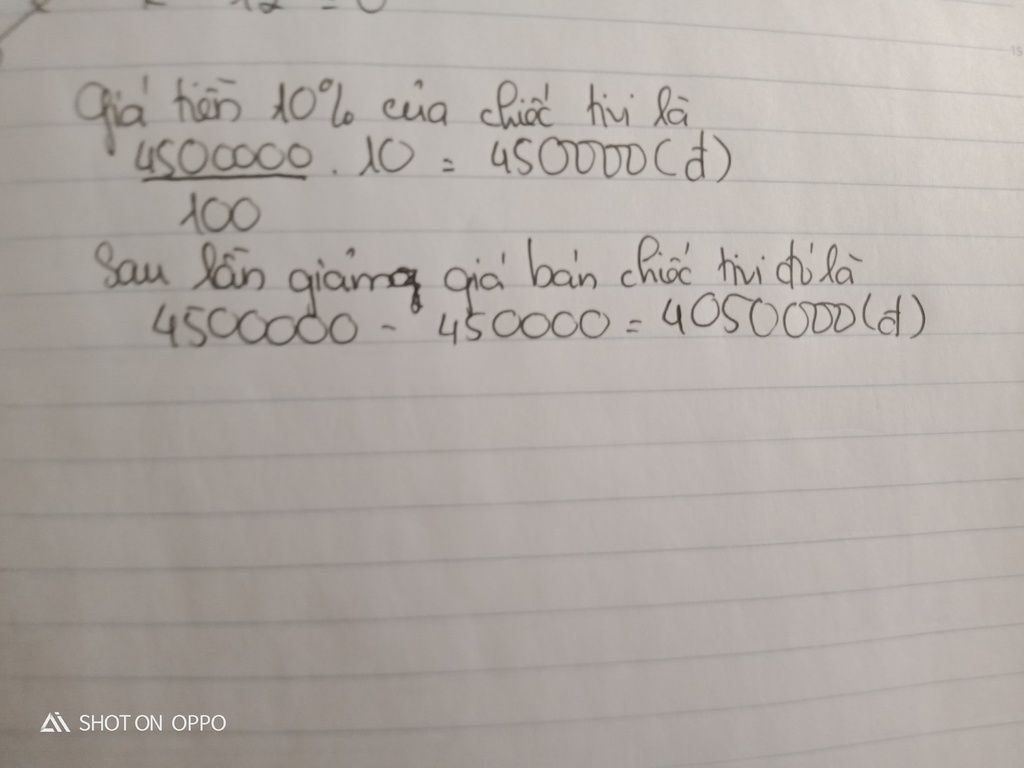 12 = 0
Giá tiền 10% của chiếc tivi là
4500000 . 10 = 450000(đ)
100
Sau lần giảm giá bán chiếc tivi đó là
4500000 - 450000 = 4050000(đ)
SHOT ON OPPO